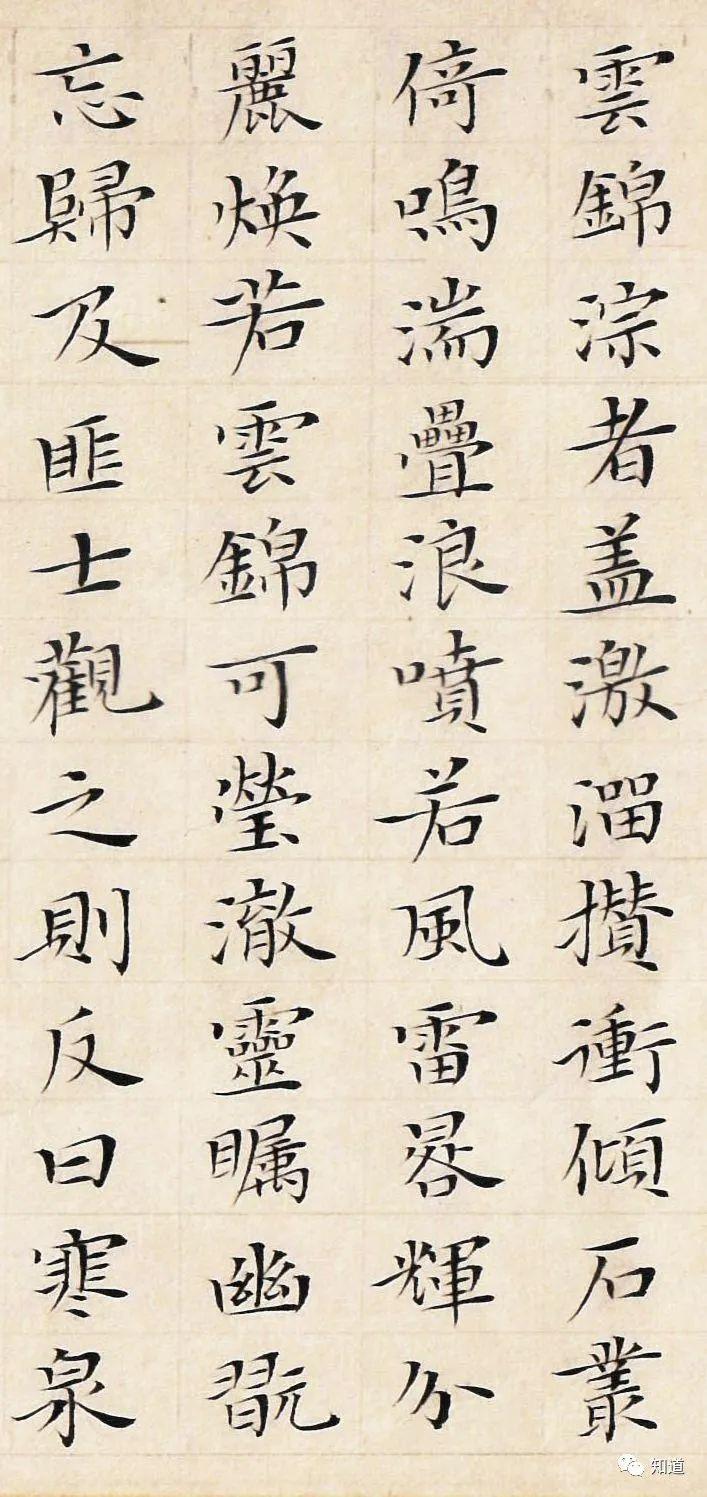 雲錦淙者盖激溜攢衝傾石叢
倚鳴湍疊浪噴若風雷晷輝分
麗煥若雲錦可瑩澈靈矚幽翫
忘歸及匪士觀之則反曰寒泉
知道